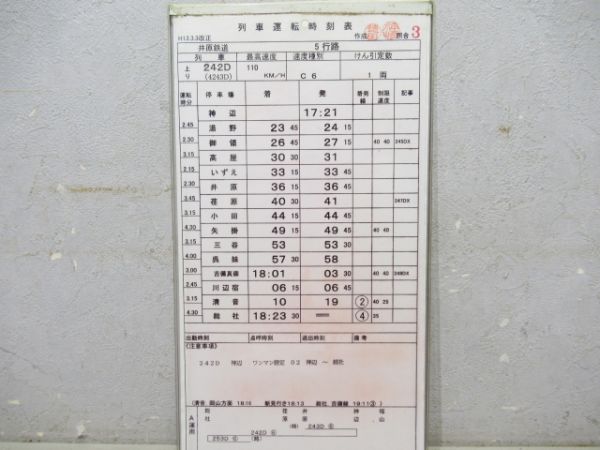 列車運転時刻表
H13.3.3改正 作成 照合 3
井原鉄道 5行路
列車 最高速度 速度種別 けん引定数
上り 242D (4243D) 110 KM/H C6 1両
運転時分 停車場 着 発 着発線 制限速度 記事
神辺 17:21
2.45 湯野 23 45 24 15
2.30 御領 26 45 27 15 40 40 245DX
3.15 高屋 30 30 31
2.15 いずえ 33 15 33 45
2.30 井原 36 15 36 45
3.45 荏原 40 30 41 247DX
3.15 小田 44 15 44 45
4.30 矢掛 49 15 49 45 40 40
3.15 三谷 53 53 30
4.00 呉妹 57 30 58
3.00 吉備真備 18:01 03 30 40 40
2.45 川辺宿 06 15 06 45
3.15 清音 10 19 ② 40 25
4.30 総社 18:23 30 = ④ 25
出勤時刻 点呼時刻 退出時刻 備考
(注意事項)
242D 神辺 ワンマン設定 02 神辺 ～ 総社
A運用
総社 井原 神辺 福山
243D ⑥
242D ⑥
253D ⑥